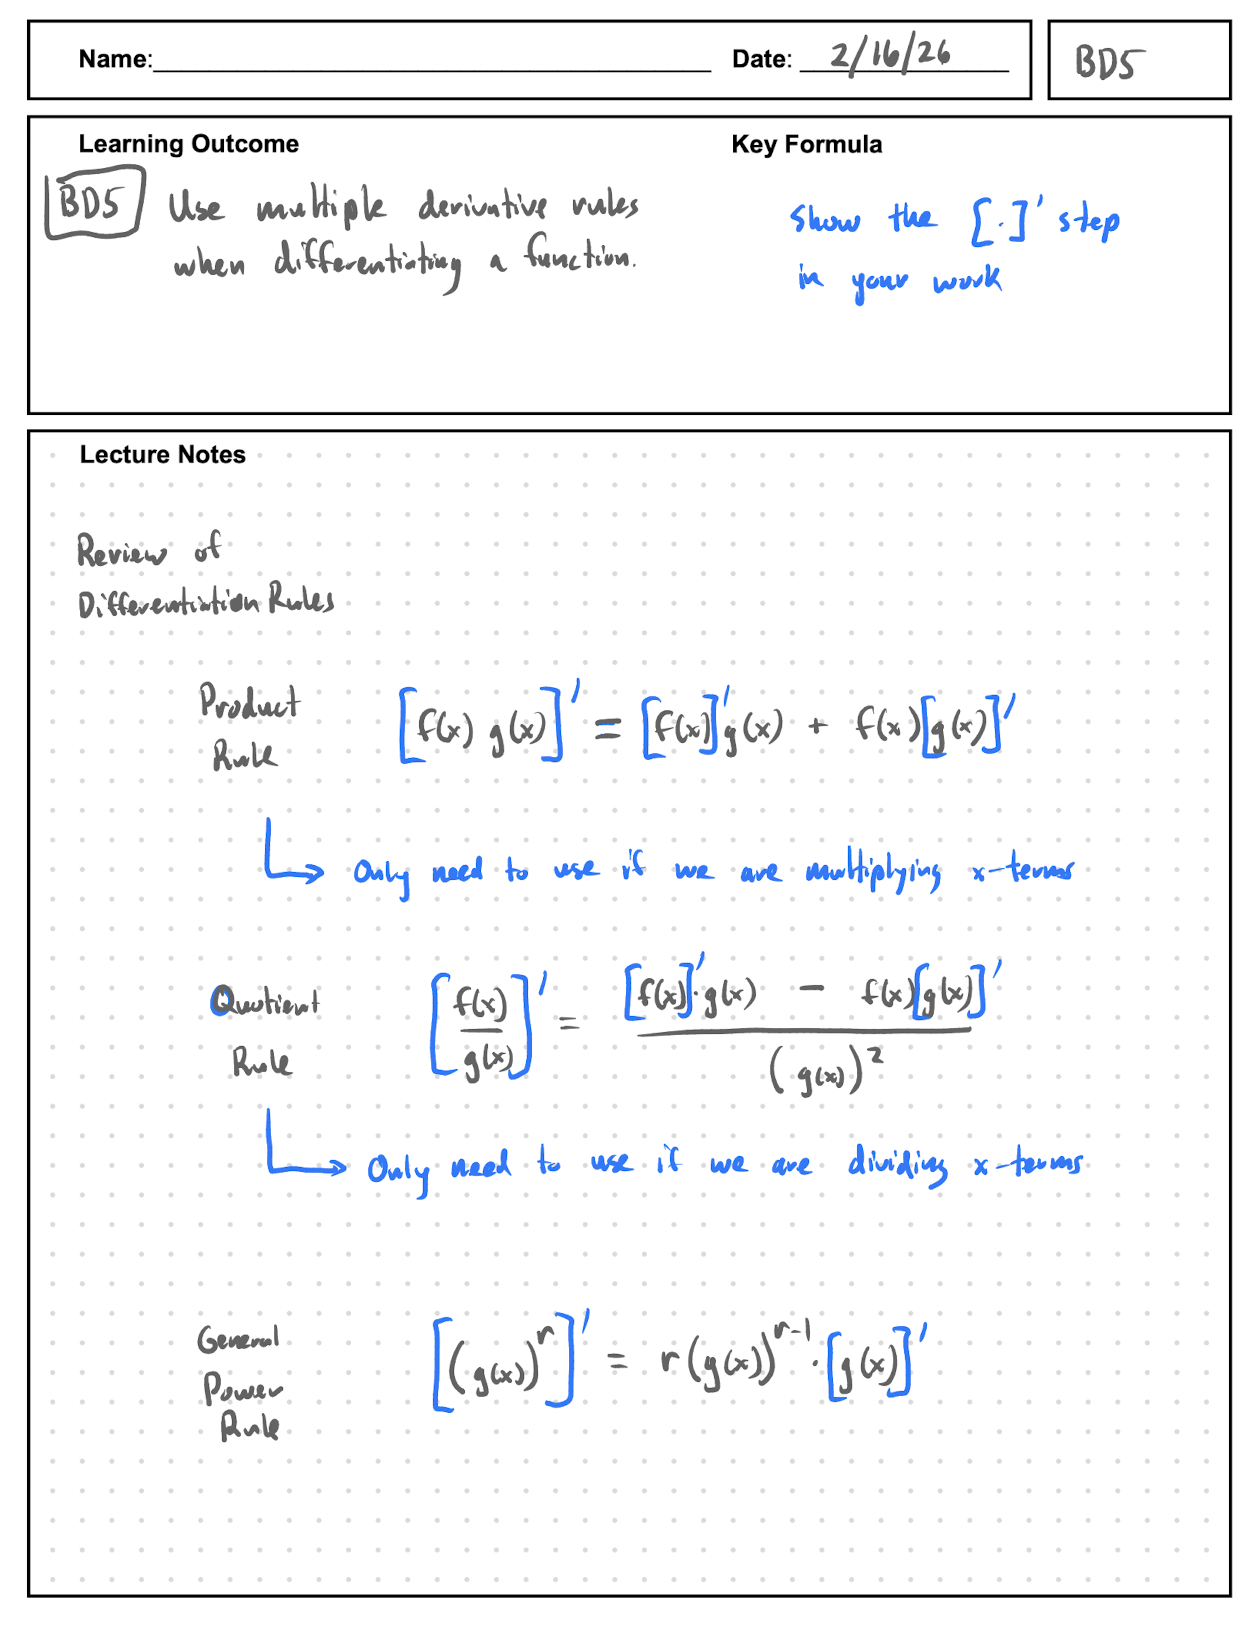 Name: Date: 2/16/26 BD5
Learning Outcome Key Formula
BD5 Use multiple derivative rules
when differentiating a function.
Show the [·]' step
in your work
Lecture Notes
Review of
Differentiation Rules
Product
Rule
[f(x) g(x)]' = [f(x)]' g(x) + f(x)[g(x)]'
Only need to use if we are multiplying x-terms
Quotient
Rule
[f(x)/g(x)]' = ([f(x)]'·g(x) − f(x)[g(x)]')/(g(x))²
Only need to use if we are dividing x-terms
General
Power
Rule
[(g(x))^r]' = r(g(x))^(r-1) · [g(x)]'